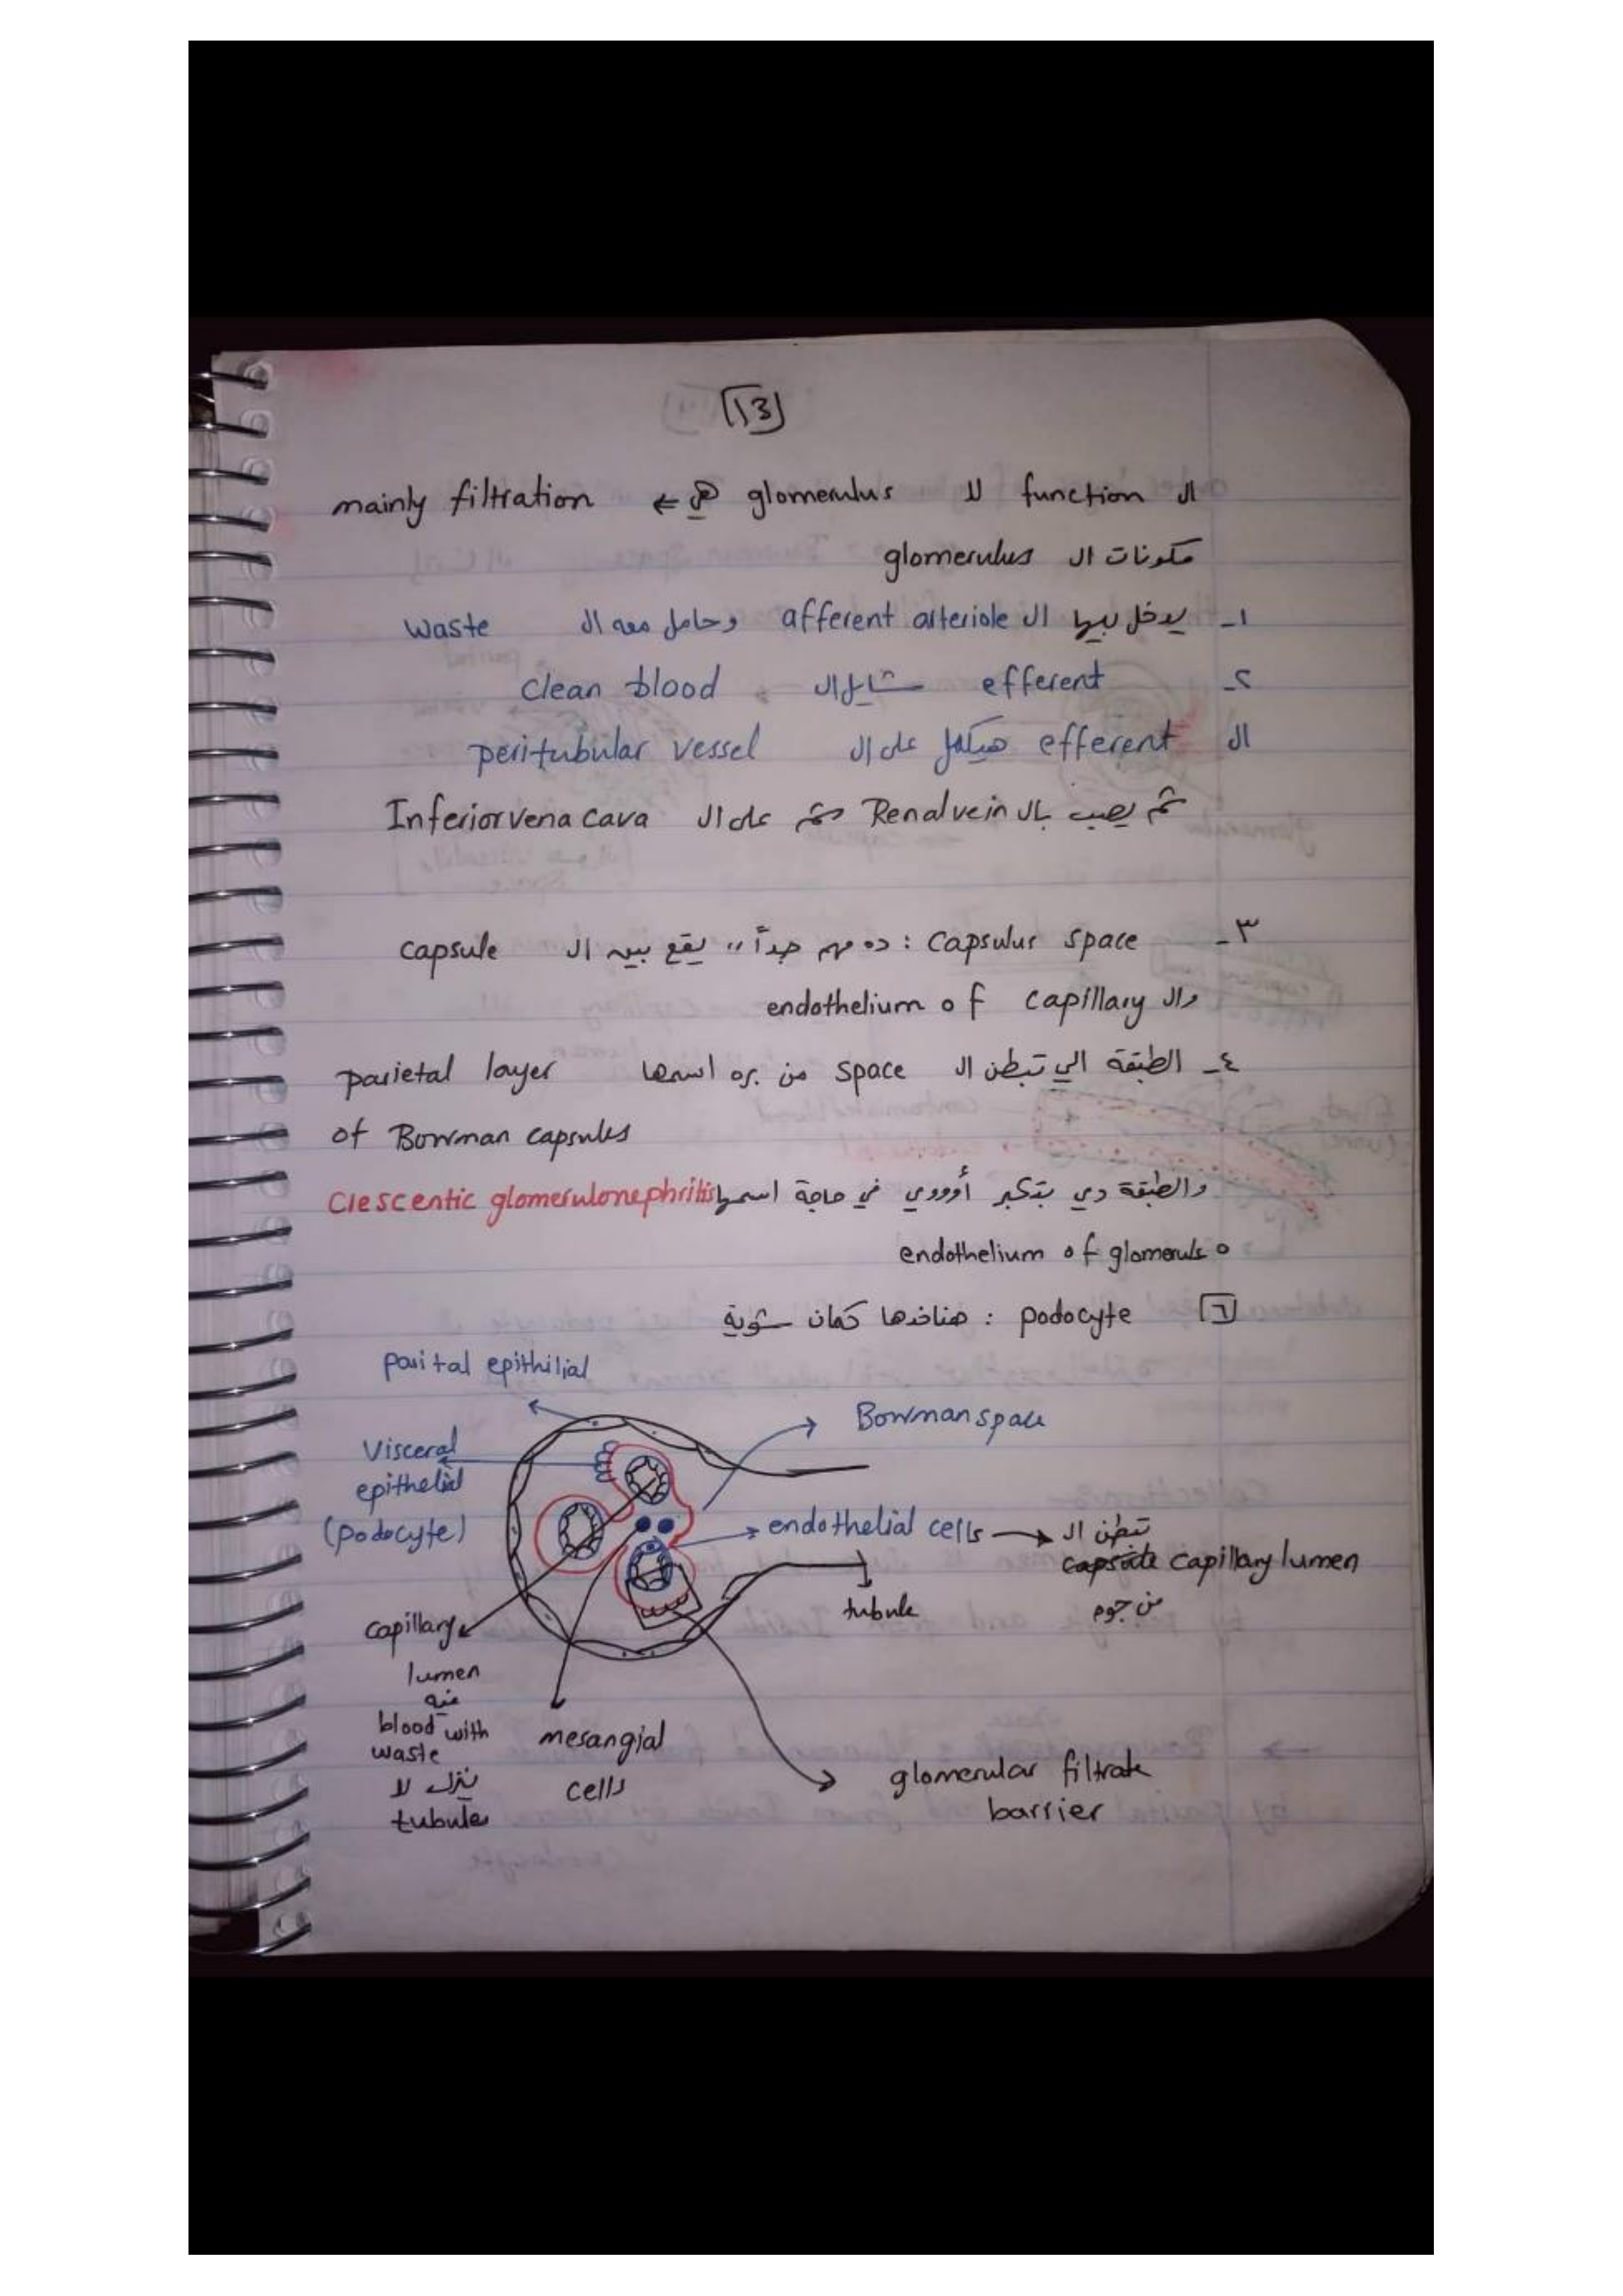 [13]
ال function لا glomerulus هي ← mainly filtration
مكونات ال glomerulus
١- يدخل بيها ال afferent arteriole وحامل معه ال waste
٢- efferent شايل ال clean blood
ال efferent هيكمل على ال peritubular vessel
ثم يصب بال Renal vein ثم على ال Inferior vena cava
٣- Capsulus space : ده مهم جداً ،، يقع بين ال capsule
وال endothelium of capillary
٤- الطبقة الي تبطن ال space من بره اسمها parietal layer
of Bowman capsules
والطبقة دي بتكبر أوووي في حاجة اسمها Crescentic glomerulonephritis
٥ endothelium of glomeruls
[٦] podocyte : هناخدها كمان شوية
parital epithilial
Bowman space
Visceral
epithelial
(podocyte)
endothelial cells → تبطن ال
capsule capillary lumen
من جوم
tubule
capillary
lumen
فيه
blood with
waste
ينزل لا
tubules
mesangial
cells
glomerular filtrate
barrier